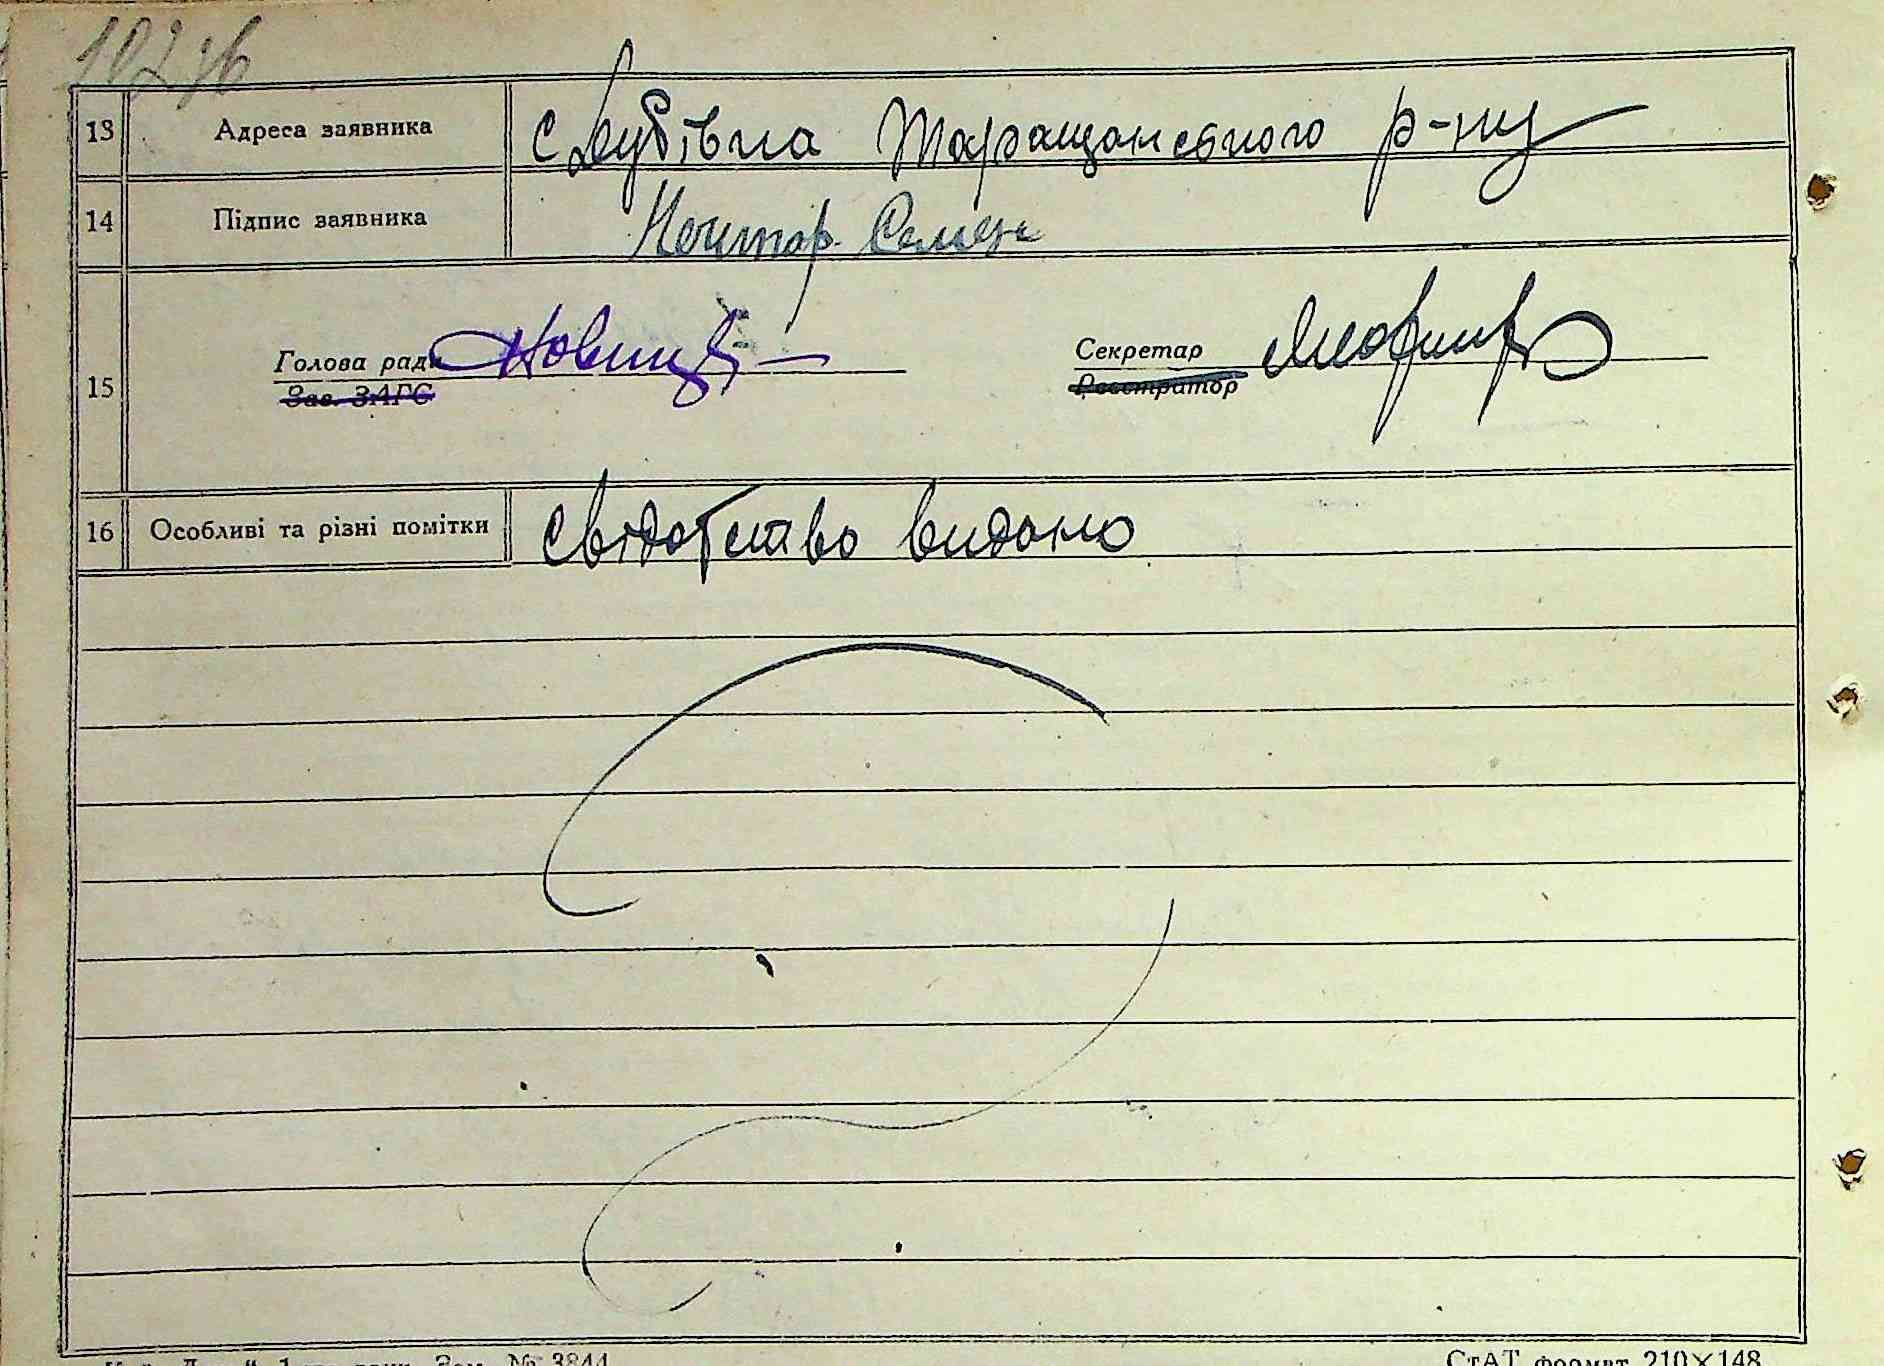 102 зв
13 Адреса заявника с Дубівка Таращанського р-ну
14 Підпис заявника Нештор Семен
15 Голова ради Новиц Секретар
Зав. ЗАГС Реєстратор
16 Особливі та різні помітки Свідотство видано
Зам. № 3844 СтАТ формат 210×148